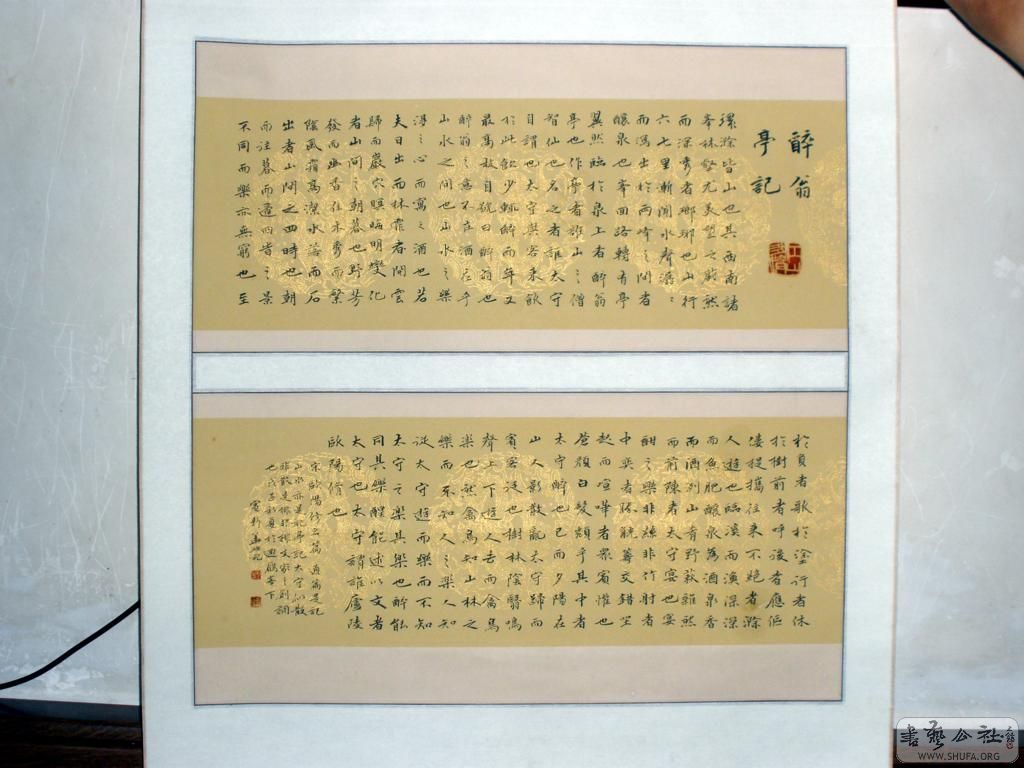 醉翁
亭記
環滁皆山也其西南諸
峯林壑尤美望之蔚然
而深秀者瑯琊也山行
六七里漸聞水聲潺〻
而瀉出於兩峰之間者
釀泉也峯回路轉有亭
翼然臨於泉上者醉翁
亭也作亭者誰山之僧
智仙也名之者誰太守
自謂也太守與客來飲
於此飲少輒醉而年又
最高故自號曰醉翁也
醉翁之意不在酒在乎
山水之間也山水之樂
得之心而寓之酒也若
夫日出而林霏開雲
歸而巖穴暝晦明變化
者山間之朝暮也野芳
發而幽香佳木秀而繁
陰風霜高潔水落而石
出者山間之四時也朝
而往暮而還四旹之景
不同而樂亦無窮也至
於負者歌於塗行者休
於樹前者呼後者應傴
僂提攜往來不絕者滁
人遊也臨溪而漁深深
而魚肥釀泉為酒泉香
而酒冽山肴野蔌雜然
而前陳者太守宴也宴
酣之樂非絲非竹射者
中奕者勝觥籌交錯坐
起而喧嘩者衆賓懽也
蒼顏白髮頹乎其中者
太守醉也已而夕陽在
山人影散亂太守歸而
賓客從也樹林陰翳鳴
聲上下遊人去而禽鳥
樂也然禽鳥知山林之
樂而不知人之樂人知
從太守遊而樂而不知
太守之樂其樂也醉能
同其樂醒能述以文者
太守也太守謂誰廬陵
歐陽修也
宋歐陽修
書藝公社
WWW.SHUFA.ORG